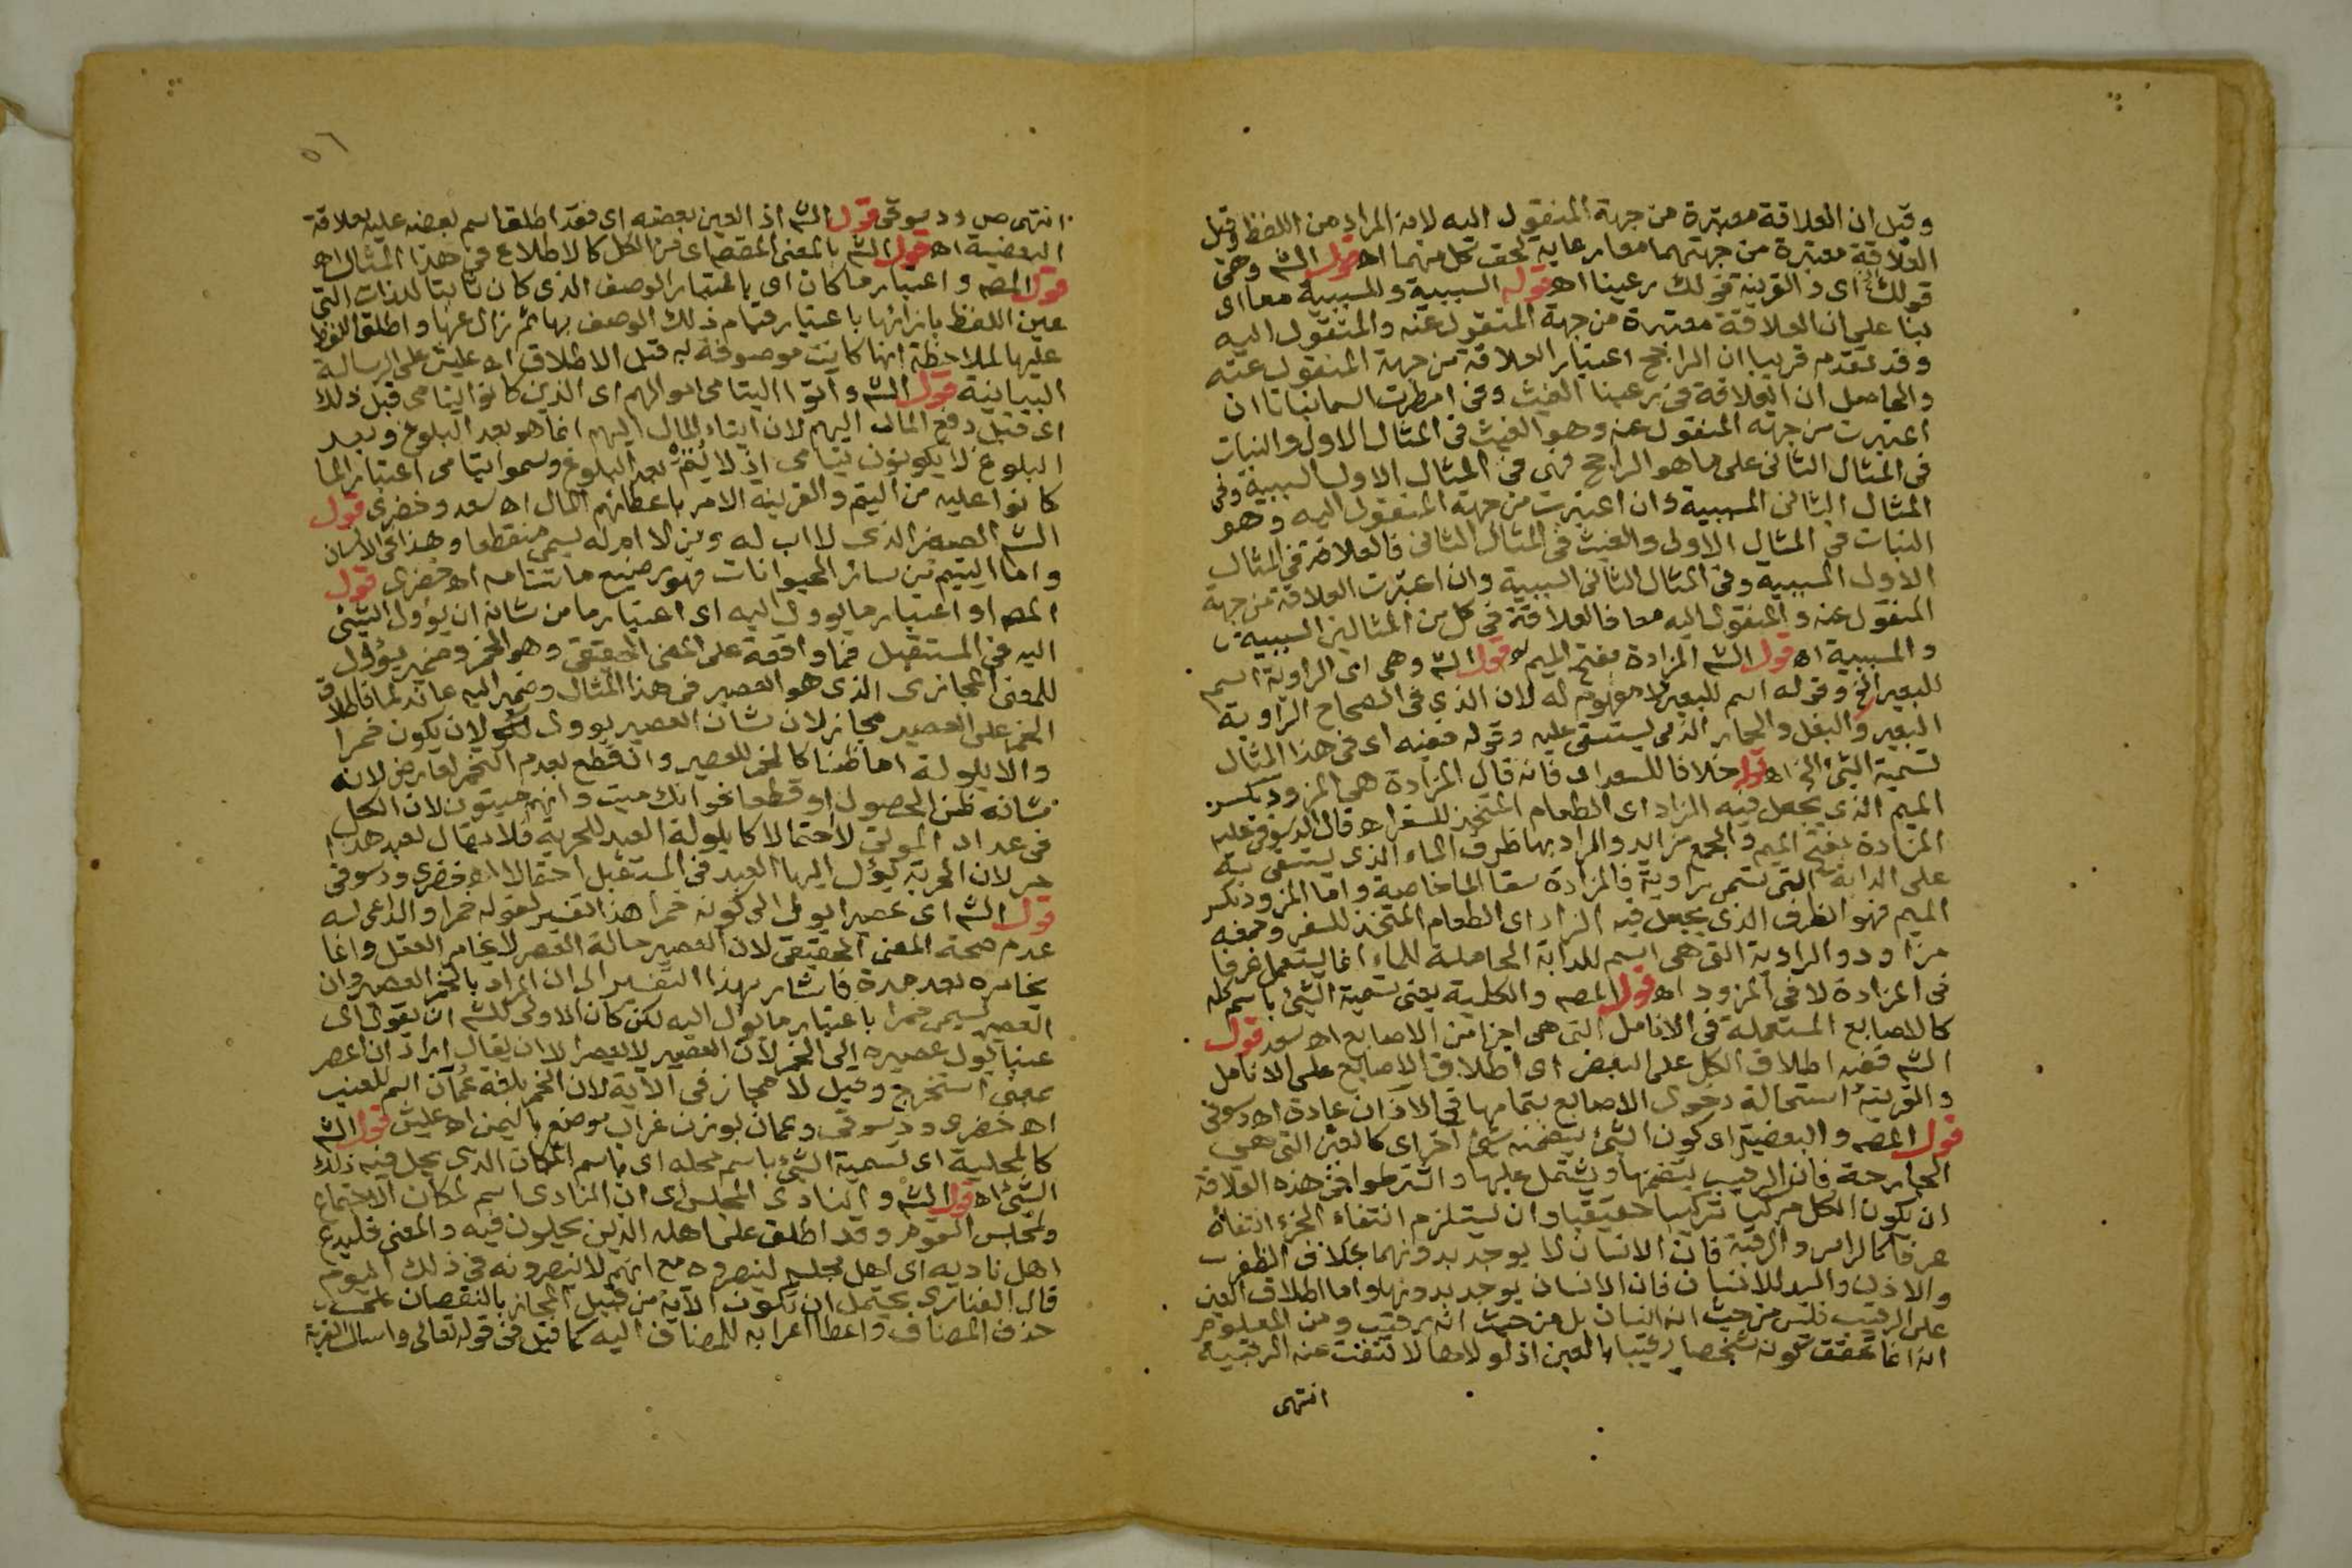 وقيل ان العلاقة معتبرة من جهة المنقول اليه لانه المراد من اللفظ وقيل
العلاقة معتبرة من جهتهما معا رعاية لحق كل منهما اه قول الشم وهى
قولك اى والقرينة قولك رعينا اه قوله السببية والمسببية معا اى
بنا على ان العلاقة معتبرة من جهة المنقول عنه والمنقول اليه
وقد تقدم قريبا ان الراجح اعتبار العلاقة من جهة المنقول عنه
والحاصل ان العلاقة فى رعينا الغيث وفى امطرت السما نباتا ان
اعتبرت من جهة المنقول عنه وهو الغيث فى المثال الاول والنبات
فى المثال الثانى على ما هو الراجح فهى فى المثال الاول السببية وفى
المثال الثانى المسببية وان اعتبرت من جهة المنقول اليه وهو
النبات فى المثال الاول والغيث فى المثال الثانى فالعلاقة فى المثال
الاول المسببية وفى المثال الثانى السببية وان اعتبرت العلاقة من جهة
المنقول عنه والمنقول اليه معا فالعلاقة فى كل من المثالين السببية
والمسببية اه قول الشم المزادة بفتح الميم قول الشم وهى اى الراوية اسم
للبعير الخ وقوله اسم للبعير لا مفهوم له لان الذى فى الصحاح الراوية
البعير والبغل والحمار الذى يستقى عليه وقوله ففيه اى فى هذا المثال
تسمية الشئ الخ اه قوله خلافا للسعد اى فانه قال المزادة هى المزود بكسر
الميم الذى يجعل فيه الزاد اى الطعام المتخذ للسفر اه قال الدسوقى عليه
المزادة بفتح الميم والجمع مزايد والمراد بها ظرف الماء الذى يستقى به
على الدابة التى تسمى راوية فالمزادة سقا الما خاصة واما المزود بكسر
الميم فهو الظرف الذى يجعل فيه الزاد اى الطعام المتخذ للسفر وجمعه
مزاود والراوية التى هى اسم للدابة الحاملة للماء انما يستعمل عرفا
فى المزادة لا فى المزود اه قول المصه والكلية يعنى تسمية الشئ باسم كله
كالاصابع المستعملة فى الانامل التى هى اجزا من الاصابع اه سعد قول
الشم ففيه اطلاق الكل على البعض اى اطلاق الاصابع على الانامل
والقرينة استحالة دخول الاصابع بتمامها فى الاذان عادة اه دسوقى
قول المصه والبعضية اى كون الشئ يتضمنه شئ اخر اى كالعين التى هى
الجارحة فان الرقيب يتضمنها ويشتمل عليها واشترطوا فى هذه العلاقة
ان يكون الكل مركبا تركيبا حقيقيا وان يستلزم انتفاء الجزء انتفاه
عرفا كالراس والرقبة فان الانسان لا يوجد بدونهما بخلاف الظفر
والاذن واليد للانسان فان الانسان يوجد بدونها واما اطلاق العين
على الرقيب فليس من حيث انه انسان بل من حيث انه رقيب ومن المعلوم
انه انما تحقق كونه شخصا رقيبا بالعين اذ لولاها لانتفت عنه الرقيبية
انتهى
انتهى ص ودسوقى قول الشم اذ العين بعضه اى فقد اطلق اسم بعضه عليه لعلاقة
البعضية اه قول الشم بالمعنى المقصود من الكل كالاطلاع فى هذا المثال اه
قول المصه واعتبار ما كان اى باعتبار الوصف الذى كان ثابتا للذات التى
عين اللفظ بازائها باعتبار قيام ذلك الوصف بها ثم زال عنها واطلق اللفظ
عليها لملاحظة انها كانت موصوفة به قبل الاطلاق اه عليش على الرسالة
البيانية قول الشم واتوا اليتامى اموالهم اى الذين كانوا يتامى قبل ذلك
اى قبل دفع المال اليهم لان ايتاء المال اليهم انما هو بعد البلوغ وبعد
البلوغ لا يكونون يتامى اذ لا يتم بعد البلوغ وسموا يتامى اعتبارا لما
كانوا عليه من اليتم والقرينة الامر باعطائهم المال اه سعد وخضرى قول
الشم الصغير الذى لا اب له ومن لا ام له يسمى منقطعا وهذا فى الانسان
واما اليتيم من سائر الحيوانات فهو رضيع ماتت امه اه خضرى قول
المصه او اعتبار ما يوول اليه اى اعتبار ما من شانه ان يؤول الشئ
اليه فى المستقبل فما واقعة على المعنى الحقيقى وهو الخمر وضمير يؤول
للمعنى المجازى الذى هو العصير فى هذا المثال وضمير اليه عائد لما فاطلاق
الخمر على العصير مجاز لان شان العصير يوول لان يكون خمرا
والايلولة اما ظنا كالخمر للعصير وانقطع بعدم التخمر لعارض لانه
شانه ظن الحصول او قطعا نحو انك ميت وانهم ميتون لان الكل
فى عداد الموتى لا احتمالا كايلولة العبد للحرية فلا يقال لعبد هذا
حر لان الحرية يؤل اليها العبد فى المستقبل احتمالا اه خضرى ودسوقى
قول الشم اى عصيرا يوول الى كونه خمرا هذا تفسير لقوله خمرا والداعى له
عدم صحة المعنى الحقيقى لان العصير حالة العصر لا يخامر العقل وانما
يخامره بعد مدة فاشار بهذا التفسير الى ان المراد بالخمر العصير وان
العصير سمى خمرا باعتبار ما يؤل اليه لكن كان الاولى للشم ان يقول اى
عنبا يؤل عصيره الى الخمر لان العصير لا يعصر الا ان يقال اراد ان اعصر
بمعنى استخرج وقيل لا مجاز فى الاية لان الخمر بلغة عمان اسم للعنب
اه خضرى ودسوقى وعمان بوزن غراب موضع باليمن اه عليش قول الشم
كالمحلية اى تسمية الشئ باسم محله اى باسم المكان الذى يحل فيه ذلك
الشئ اه قول الشم والنادى المجلس اى ان النادى اسم لمكان الاجتماع
ولمجلس القوم وقد اطلق على اهله الذين يحلون فيه والمعنى فليدع
اهل ناديه اى اهل مجلسه لينصروه مع انهم لا ينصرونه فى ذلك اليوم
قال الفنارى يحتمل ان تكون الآية من قبيل المجاز بالنقصان على
حذف المضاف واعطا اعرابه للمضاف اليه كما قيل فى قوله تعالى واسال القرية